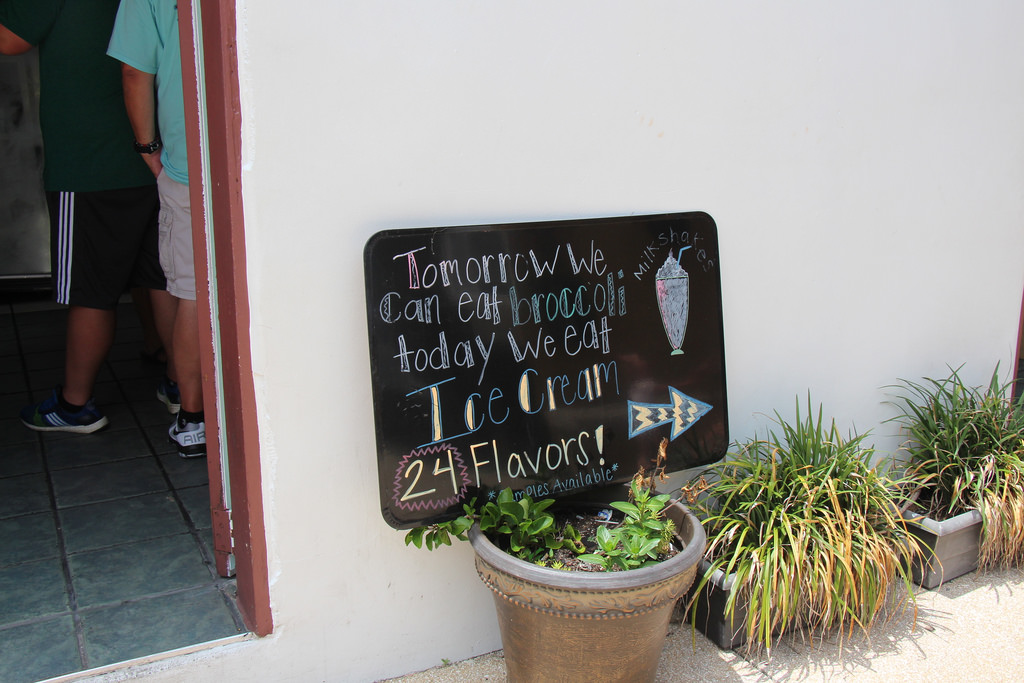 Tomorrow We
can eat broccoli
today We eat
Ice Cream
24 Flavors!
*Samples Available*
Milkshakes
AIR